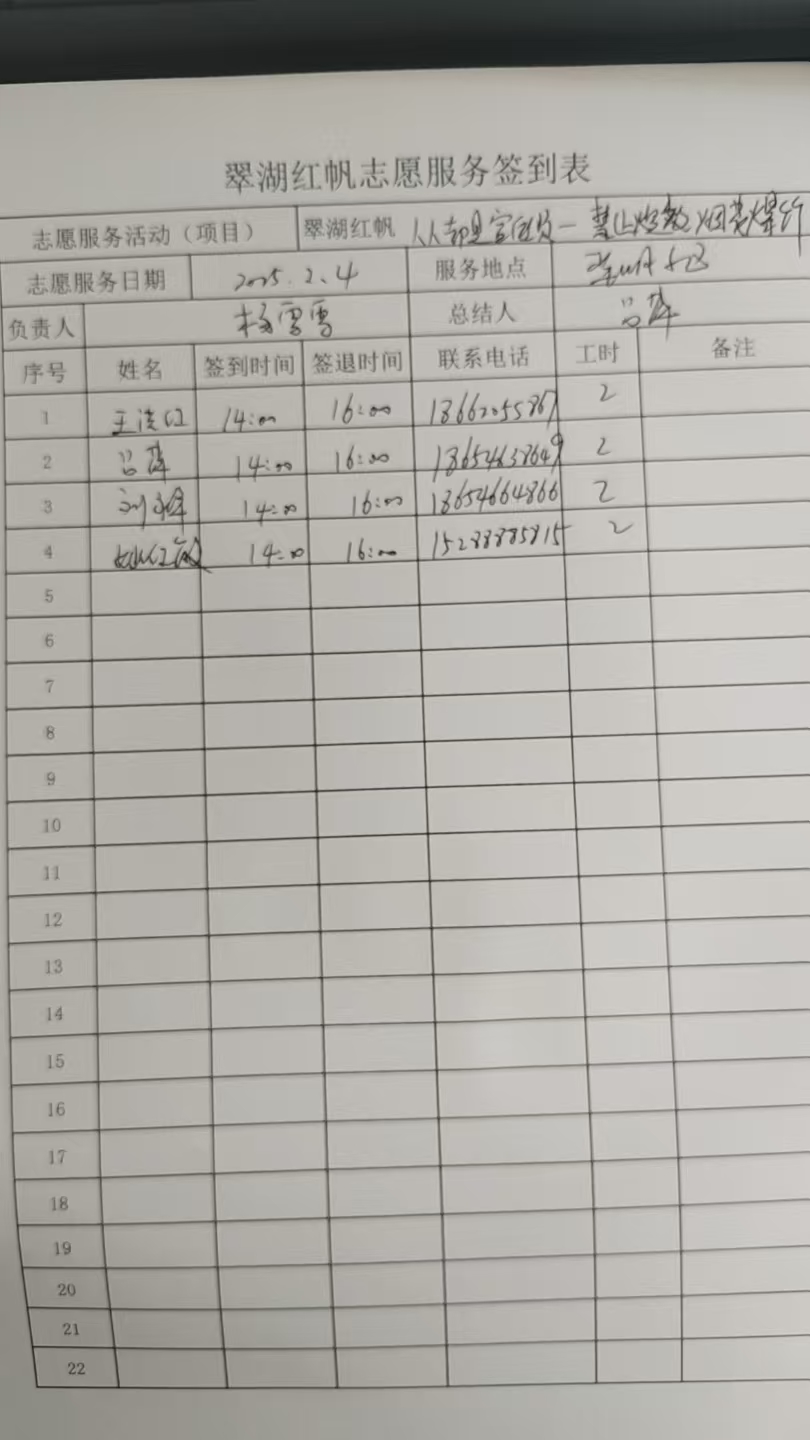 翠湖红帆志愿服务签到表
志愿服务活动（项目） 翠湖红帆 人人都是宣传员一禁止燃放烟花爆竹
志愿服务日期 2025.2.4 服务地点
负责人 杨雪雪 总结人 吕萍
序号 姓名 签到时间 签退时间 联系电话 工时 备注
1 14:00 16:00 2
2 吕萍 14:00 16:00 18654638649 2
3 14:00 16:00 18654664866 2
4 14:00 16:00 15288885815 2
5
6
7
8
9
10
11
12
13
14
15
16
17
18
19
20
21
22